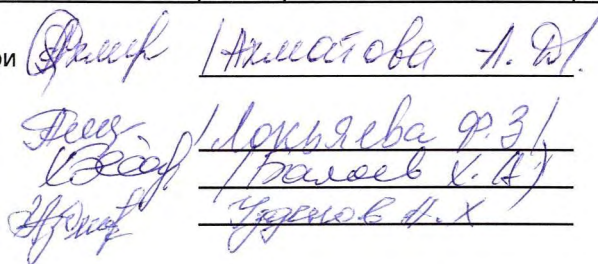 ри /Ахматова А. Д/.
/Локьяева Ф.З/
/Балаев Х. А/
Узденов А.Х